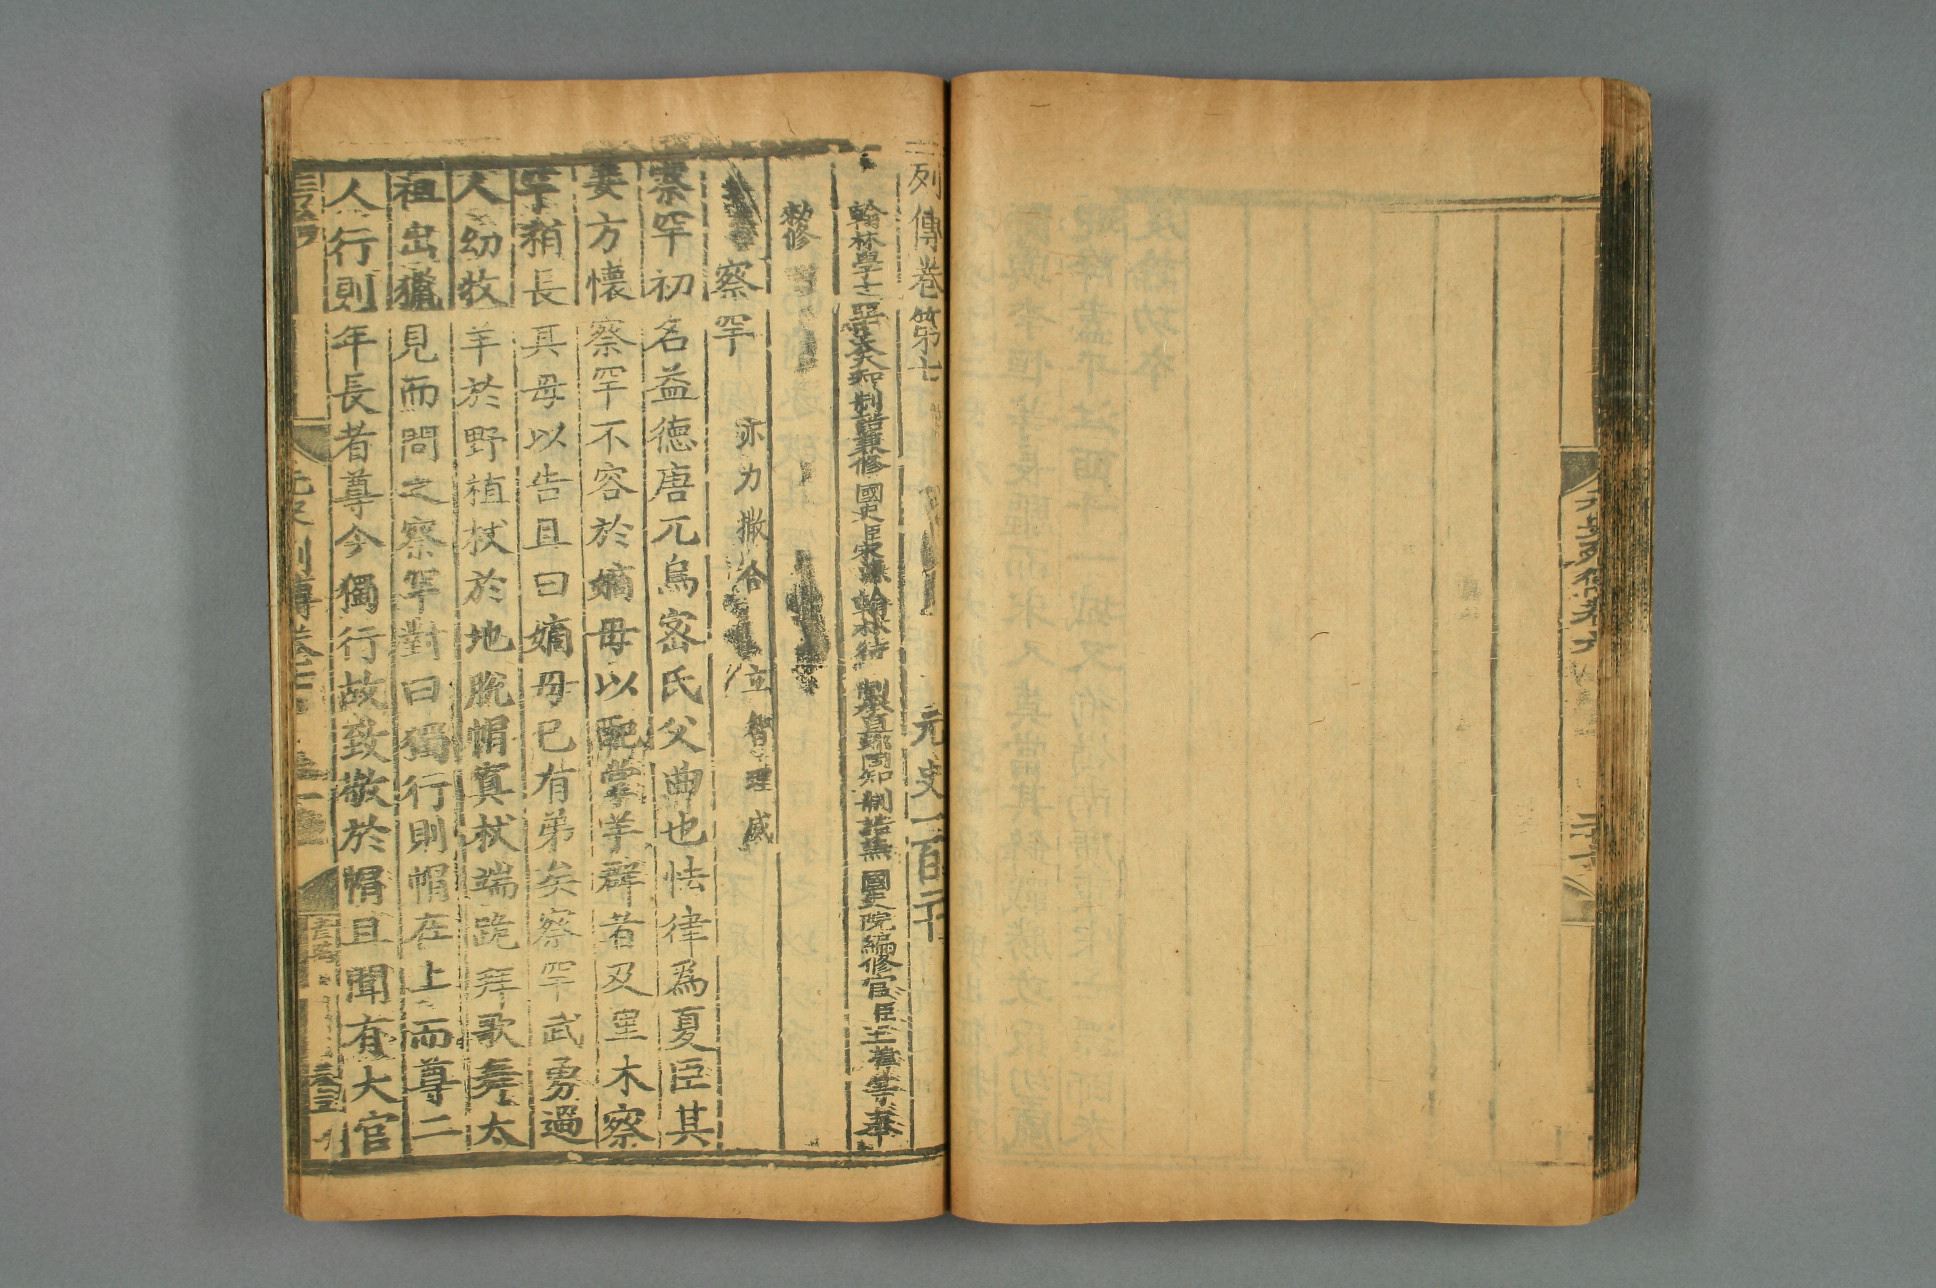 元史列傳卷六
列傳卷第七 元史一百二十
翰林學士亞中大夫知制誥兼修國史臣宋濂翰林待制承直郎同知制誥兼國史院編修官臣王褘等奉
敕修
察罕 亦力撒合 立智理威
察罕初名益德唐兀烏密氏父曲也怯律爲夏臣其
妾方懷察罕不容於嫡母以配掌羊群者及里木察
罕稍長其母以告且曰嫡母已有弟矣察罕武勇過
人幼牧羊於野植杖於地脫帽寘杖端跪拜歌舞太
祖出獵見而問之察罕對曰獨行則帽在上而尊二
人行則年長者尊今獨行故致敬於帽且聞有大官
元史列傳卷七